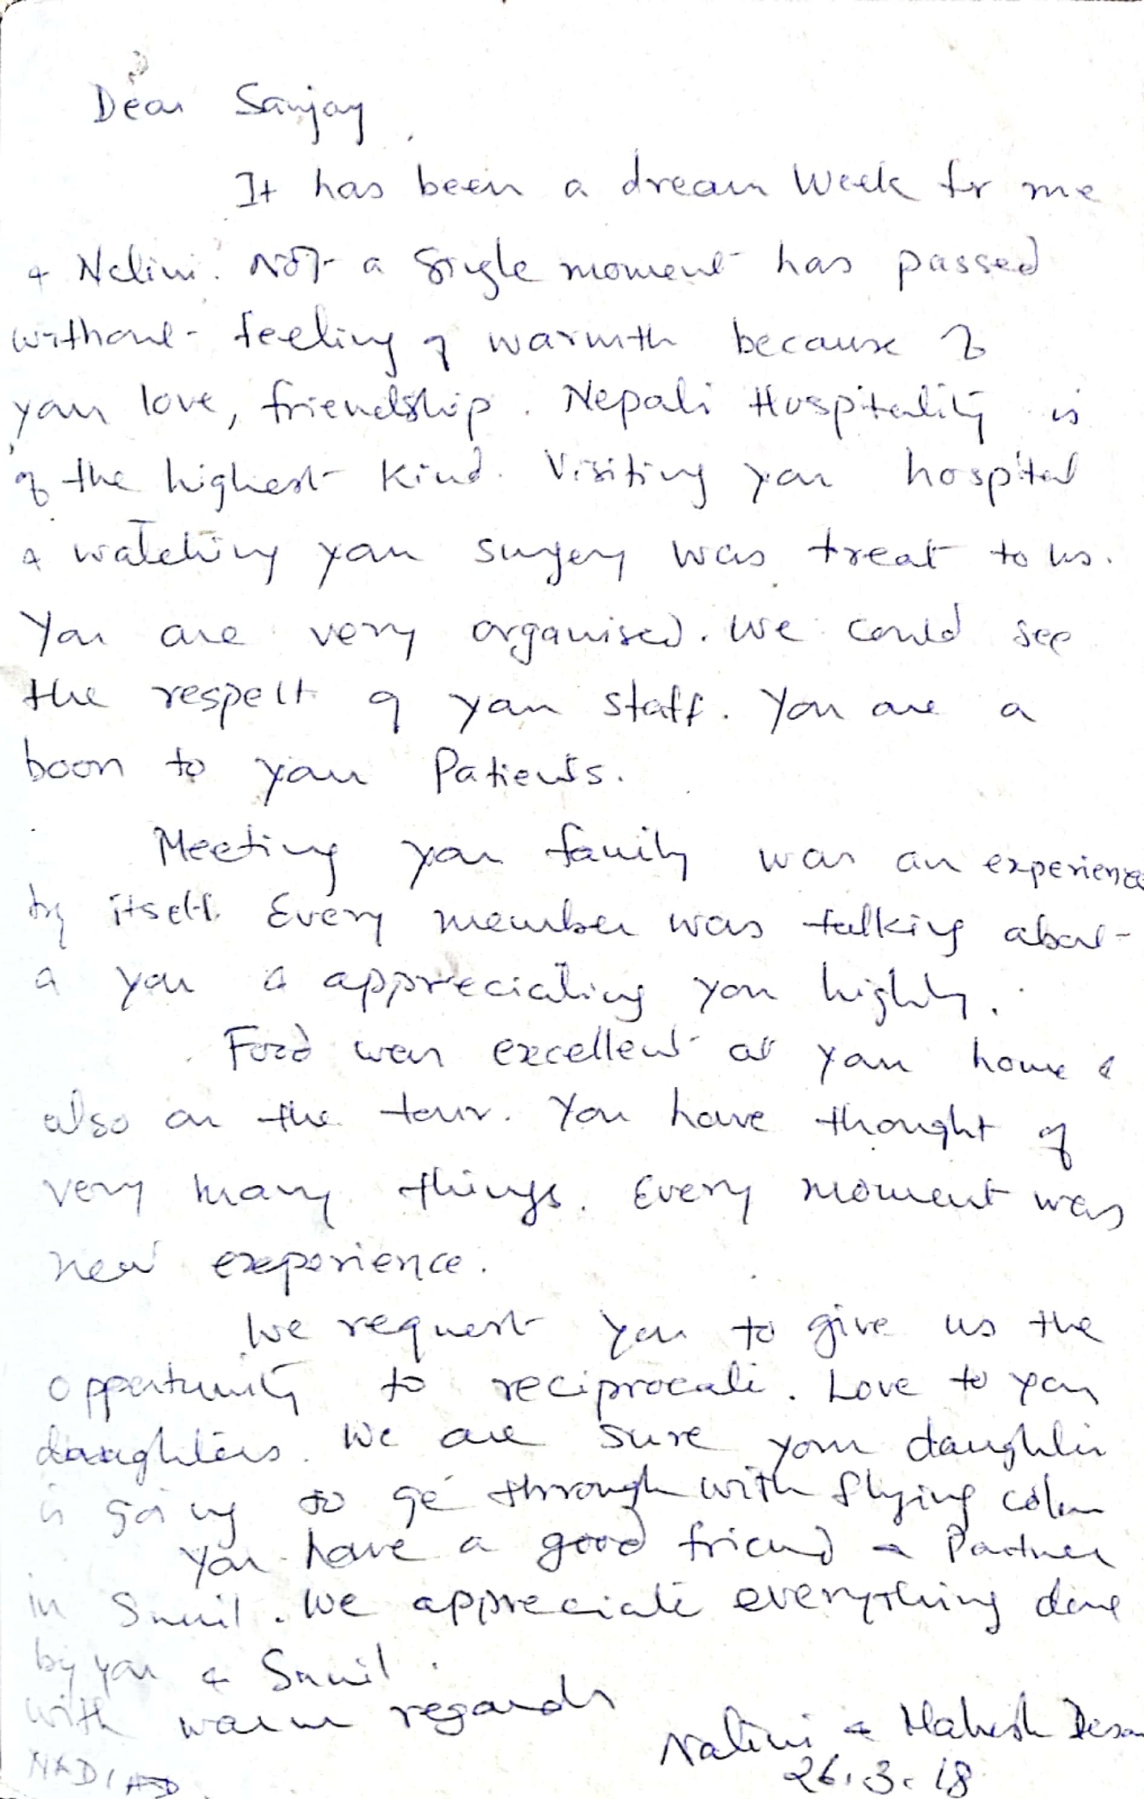 Dear Sanjay,
It has been a dream week for me
& Nalini. Not a single moment has passed
without feeling of warmth because of
your love, friendship. Nepali Hospitality is
of the highest kind. Visiting your hospital
& watching your surgery was treat to us.
You are very organised. We could see
the respect of your staff. You are a
boon to your Patients.
Meeting your family was an experience
by itself. Every member was talking about
you & appreciating you highly.
Food was excellent at your home &
also on the tour. You have thought of
very many things. Every moment was
new experience.
We request you to give us the
opportunity to reciprocate. Love to your
daughters. We are sure your daughter
is going to go through with flying colour
You have a good friend & Partner
in Sunil. We appreciate everything done
by you & Sunil.
with warm regards
Nalini & Mahesh Desai
NADIAD
26.3.18